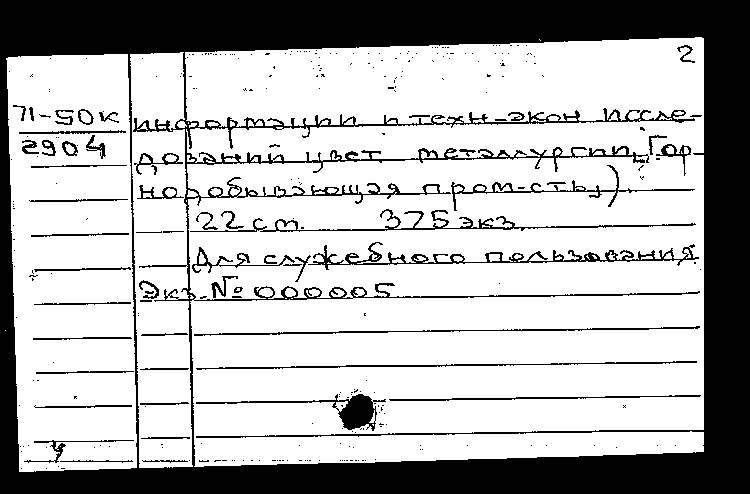 2
71-50к информации и техн-экон иссле-
2904 дований цвет. металлургии, Гор-
нодобывающая пром-сть,)
22 см. 375 экз.
Для служебного пользования
Экз. № 000005